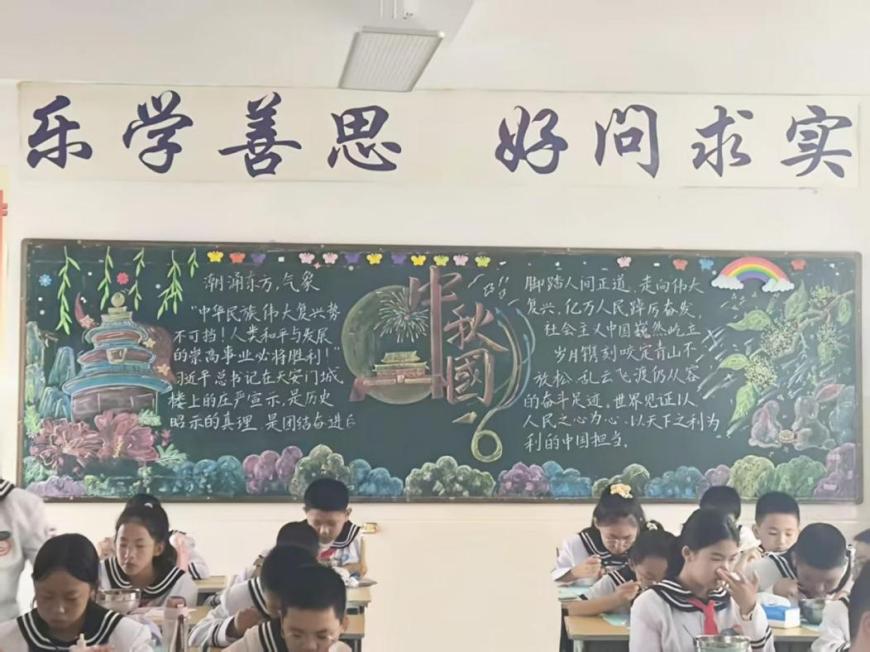 乐学善思 好问求实
潮涌东方,气象
“中华民族伟大复兴势
不可挡!人类和平与发展
的崇高事业必将胜利!”
习近平总书记在天安门城
楼上的庄严宣示,是历史
昭示的真理,是团结奋进
中秋國
脚踏人间正道,走向伟大
复兴,亿万人民踔厉奋发,
社会主义中国巍然屹立
岁月镌刻咬定青山不
放松,乱云飞渡仍从容
的奋斗足迹。世界见证以
人民之心为心、以天下之利为
利的中国担当。